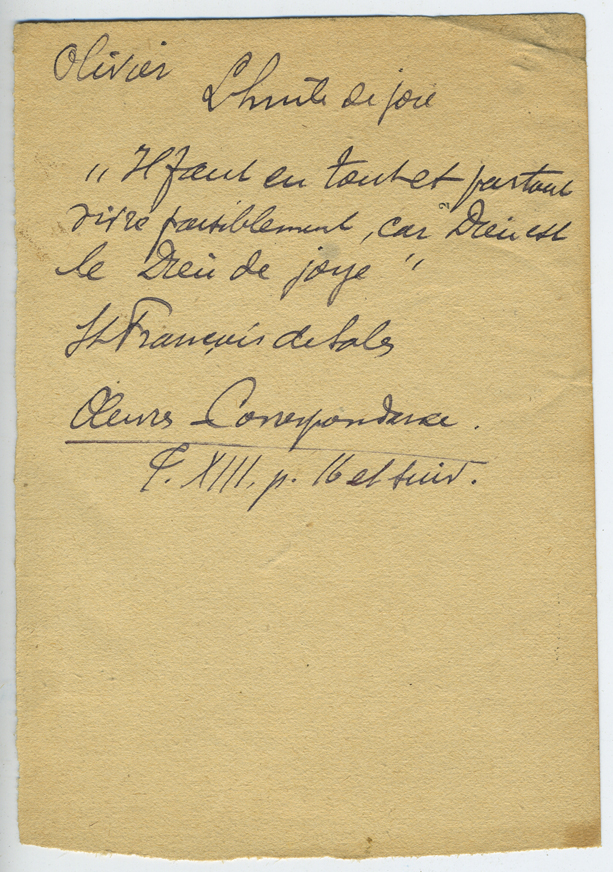 Olivier
L'huile de joie
"Il faut en tout et partout
vivre paisiblement, car Dieu est
le Dieu de joye"
St François de Sales
Œuvres - Correspondance.
T. XIII, p. 16 et suiv.